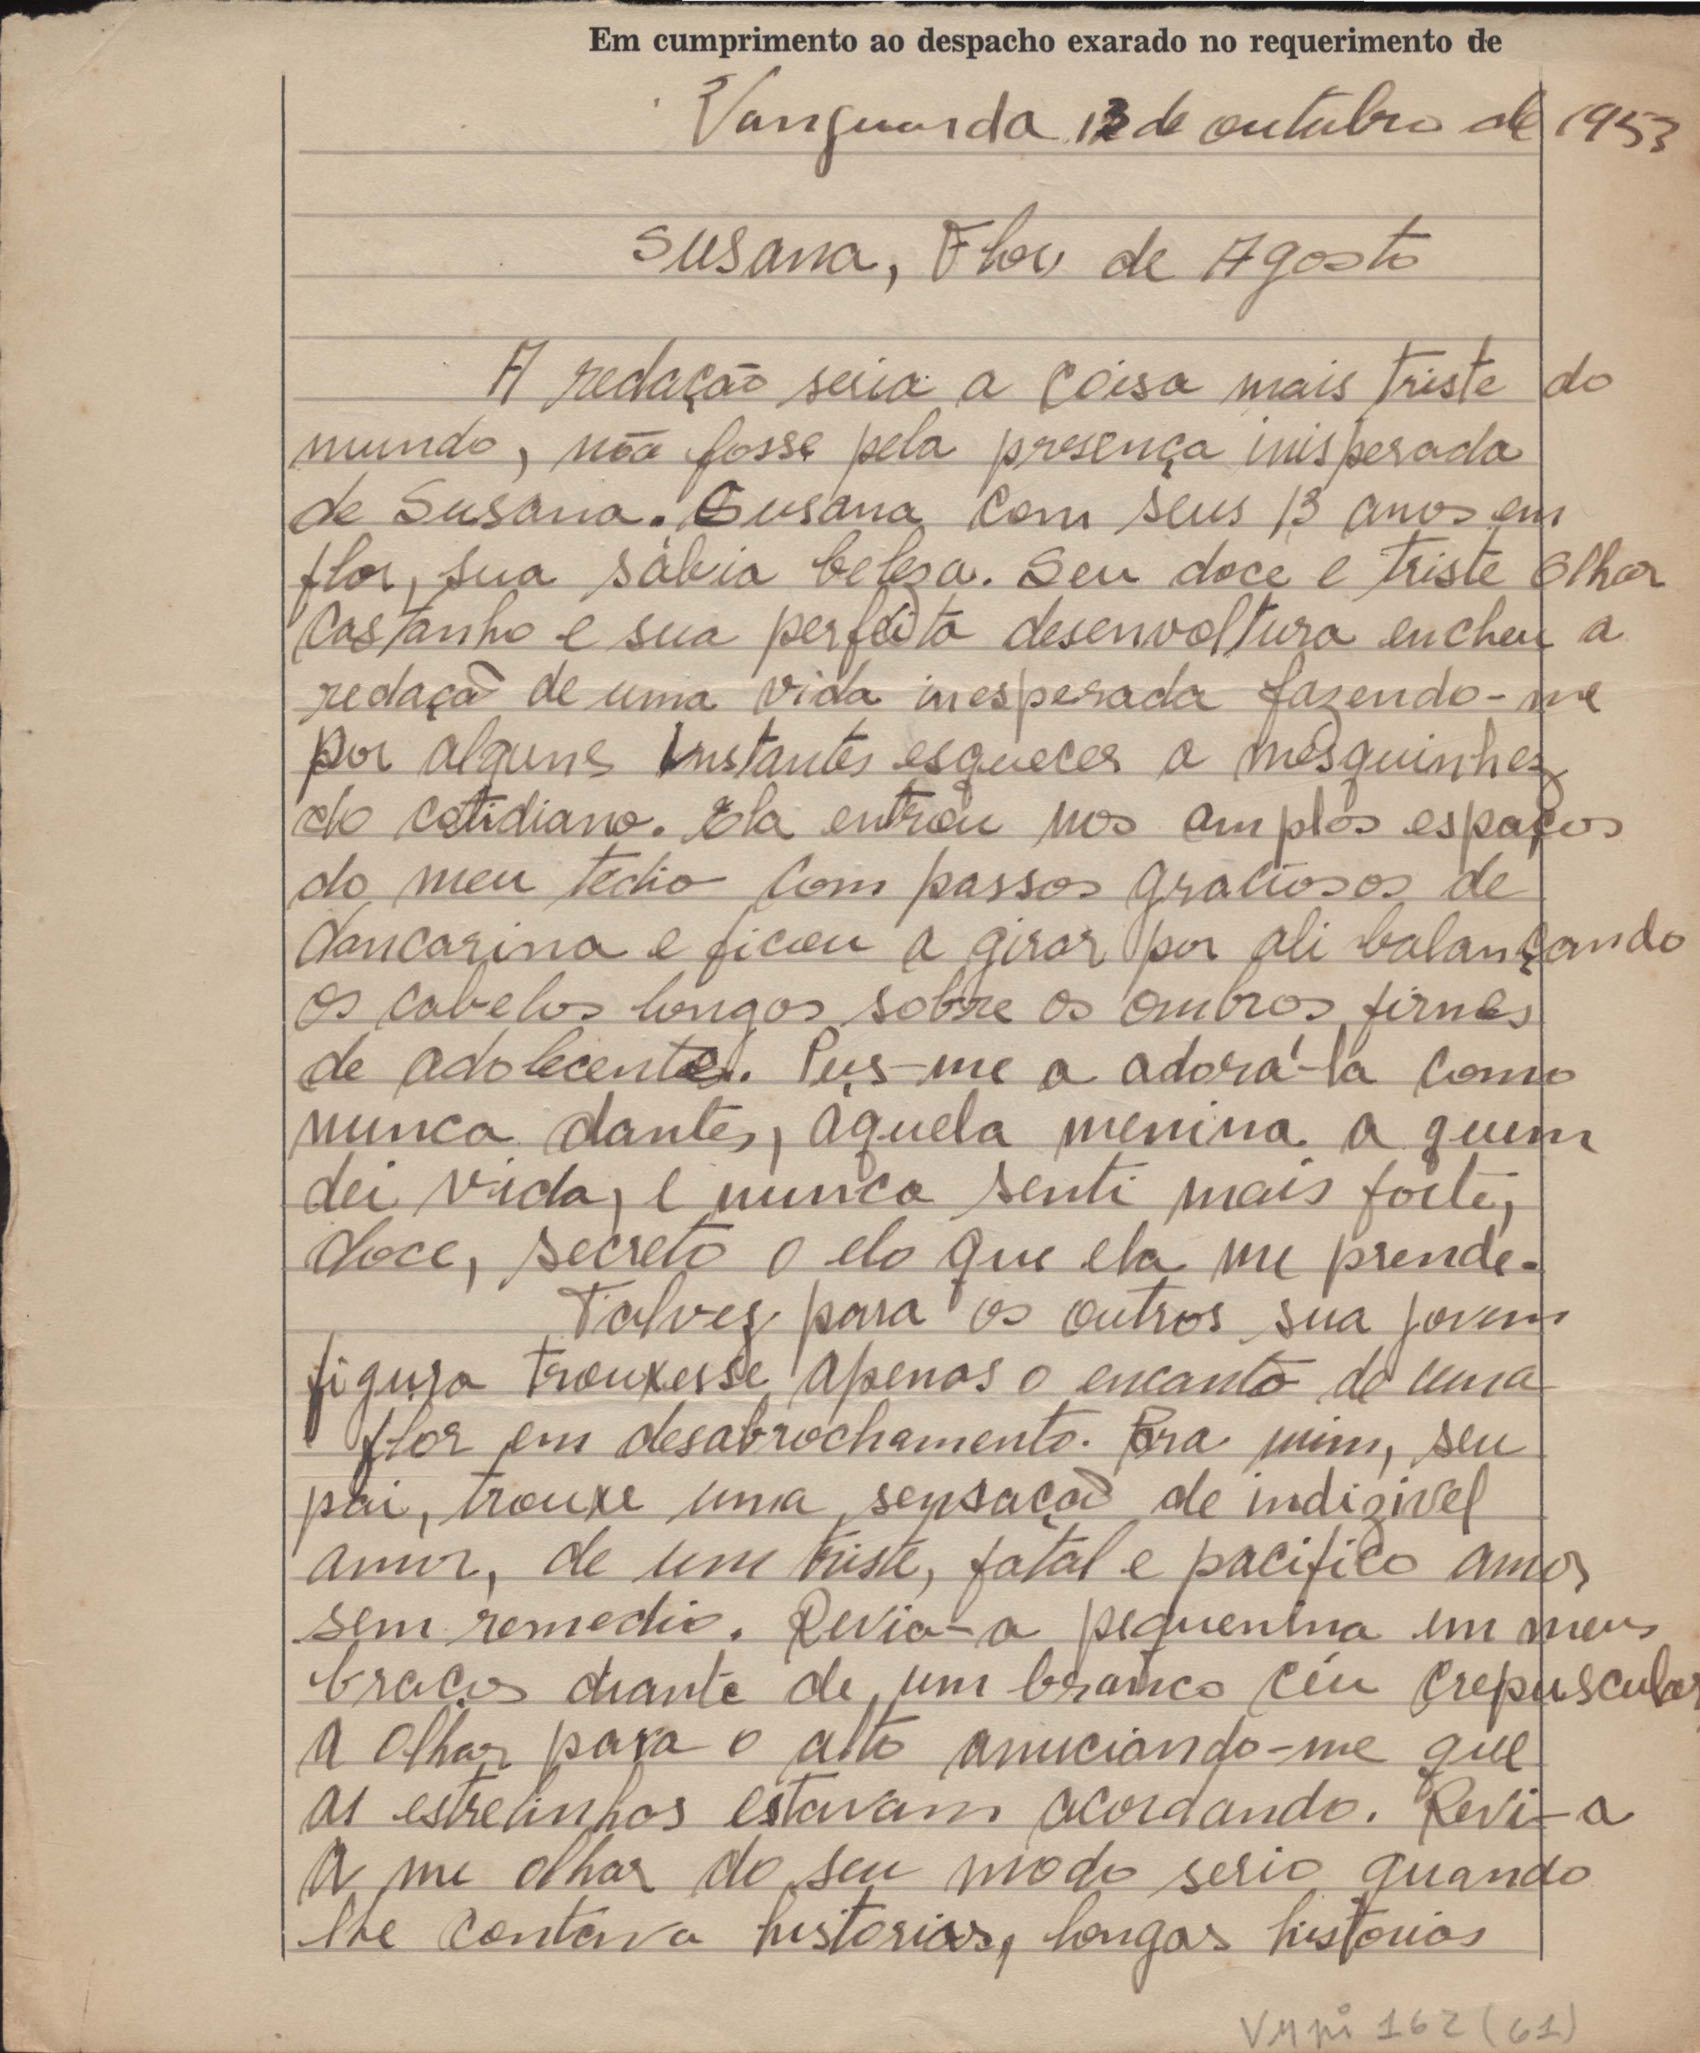 Em cumprimento ao despacho exarado no requerimento de
Vanguarda 13 de outubro de 1953
Susana, Flor de Agosto
A redação seria a coisa mais triste do
mundo, não fosse pela presença inisperada
de Susana. Susana com seus 13 anos em
flor, sua sábia beleza. Seu doce e triste olhar
castanho e sua perfeita desenvoltura encheu a
redação de uma vida inesperada fazendo-me
por alguns instantes esquecer a mesquinhez
do cotidiano. Ela entrou nos amplos espaços
do meu tedio com passos graciosos de
dancarina e ficou a girar por ali balançando
os cabelos longos sobre os ombros firmes
de adolecente. Pus-me a adorá-la como
nunca dantes, àquela menina a quem
dei vida, e nunca senti mais forte,
doce, secreto o elo que ela me prende.
Talvez para os outros sua jovem
figura trouxesse apenas o encanto de uma
flor em desabrochamento. Pra mim, seu
pai, trouxe uma sensação de indizivel
amor, de um triste, fatal e pacifico amor
sem remedio. Revia-a pequenina em meus
braços diante de um branco céu crepuscular
a olhar para o alto anuciando-me que
as estrelinhas estavam acordando. Revi-a
a me olhar do seu modo serio quando
lhe contava historias, longas historias
162 (61)